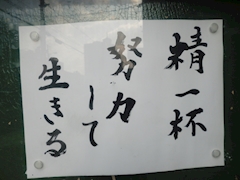 精一杯
努力
して
生きる